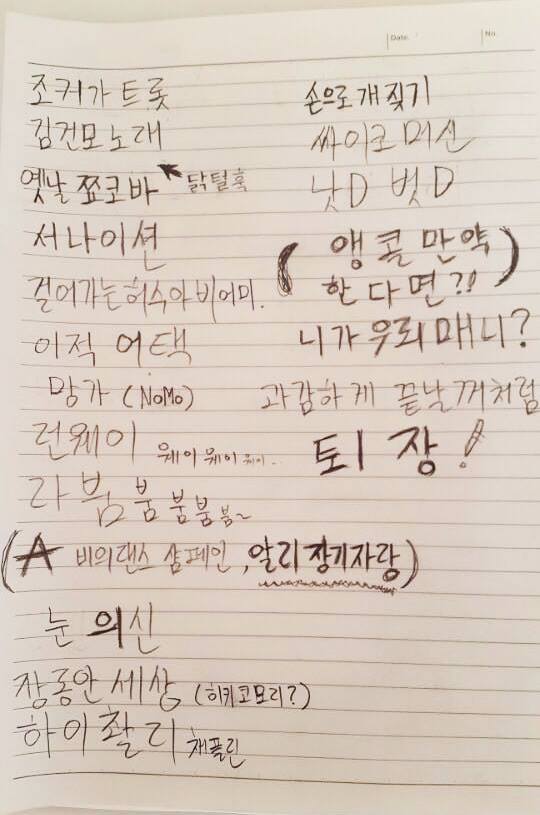 Date.
No.
조커가 트롯
김건모 노래
옛날 쬬코바 닭털훅
서나이션
걸어가는 허수아비어미.
이적 어택
망가 (NoMo)
런웨이 웨이 웨이 웨이...
라붐 붐 붐붐 붐~
(A 비의랜스 샴페인, 알리 장기자랑)
눈의신
장동안 세상 (히키코모리?)
하이 촬리 채플린
손으로 개짖기
싸이코 머신
낫D 벗D
(앵콜 만약
한다면?!)
니가 우리 매니?
과감하게 끝날꺼처럼
퇴장!